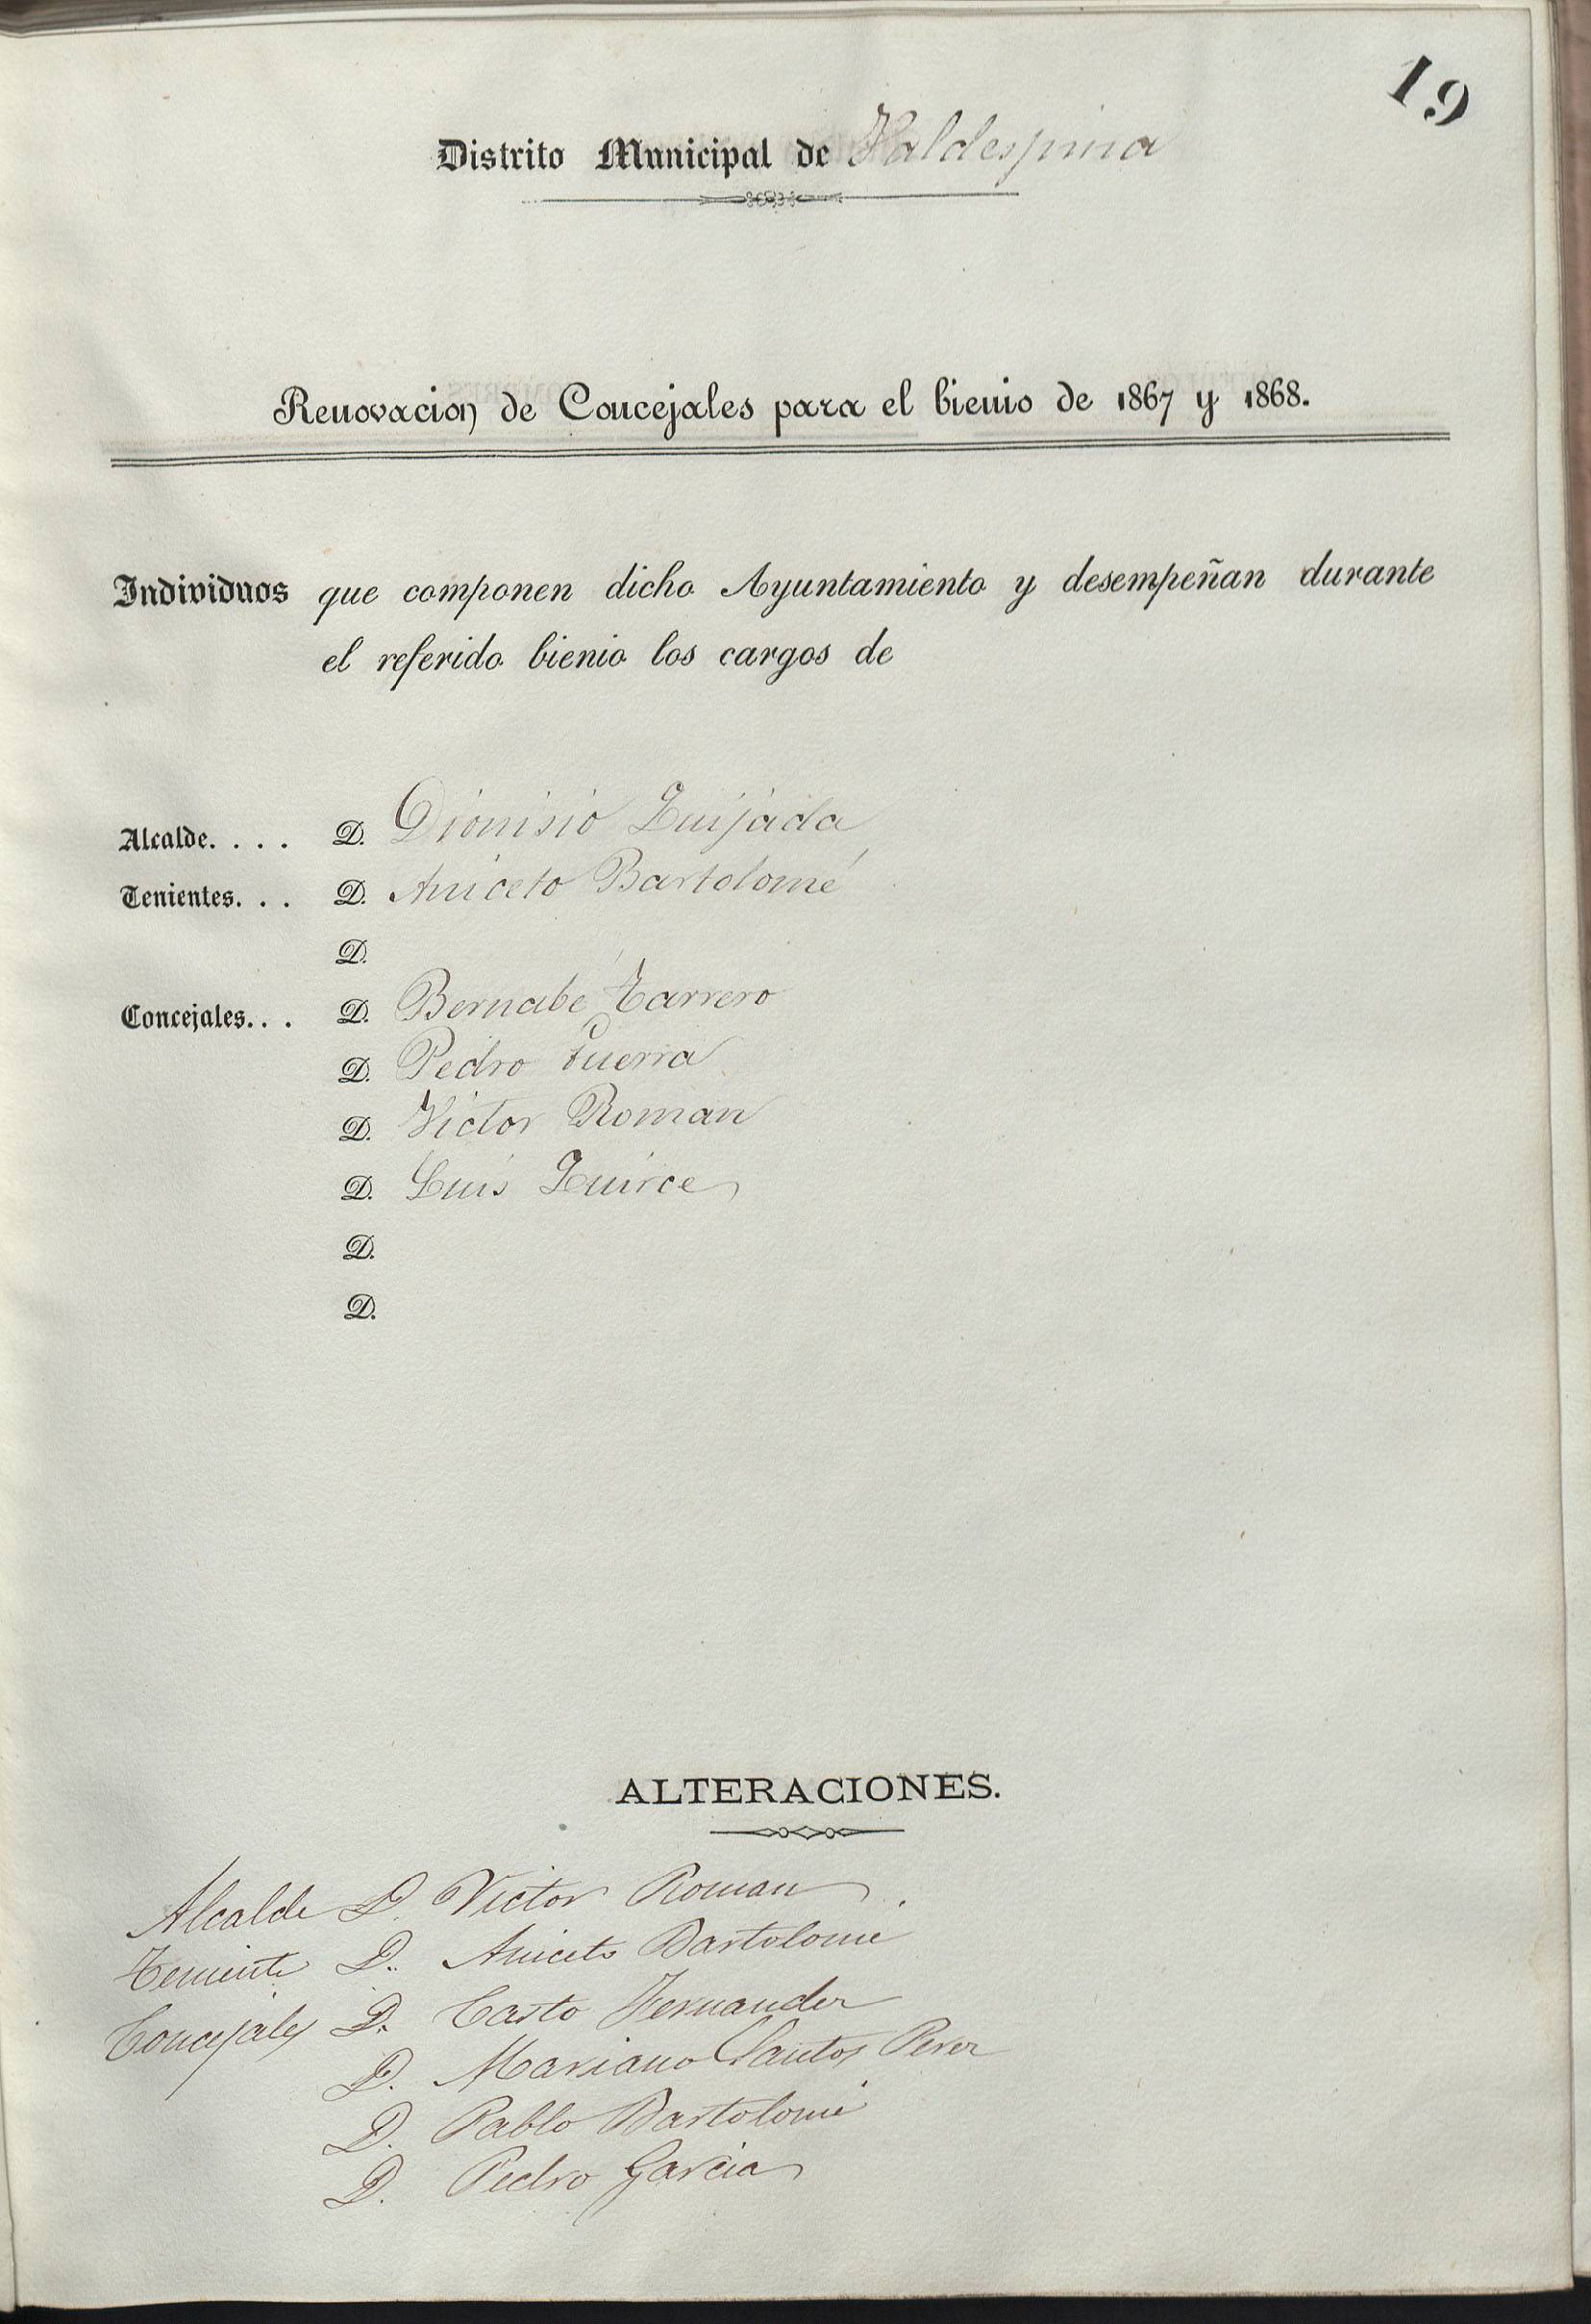 19
Distrito Municipal de Valdespina
Renovacion de Concejales para el bienio de 1867 y 1868.
Individuos que componen dicho Ayuntamiento y desempeñan durante
el referido bienio los cargos de
Alcalde. . . . D. Dionisio Quijada
Tenientes. . . D. Aniceto Bartolomé
D.
Concejales. . . D. Bernabé Tarrero
D. Pedro Guerra
D. Victor Roman
D. Luis Quirce
D.
D.
ALTERACIONES.
Alcalde D. Victor Roman
Teniente D. Aniceto Bartolomé
Concejales D. Casto Fernandez
D. Mariano Santos Perez
D. Pablo Bartolomé
D. Pedro Garcia